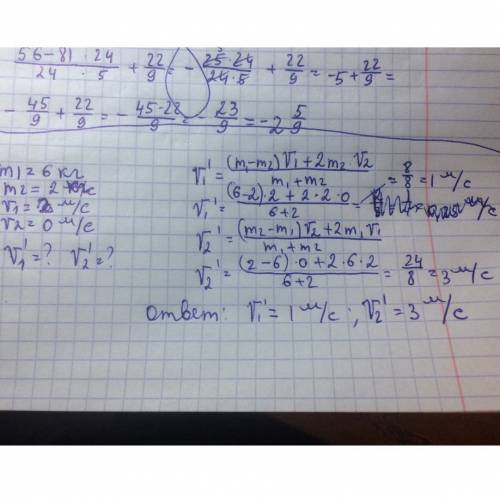 56-81·24/24·5 + 22/9 = - 25·24/24·5 + 22/9 = -5 + 22/9 =
- 45/9 + 22/9 = - 45-22/9 = - 23/9 = -2 5/9
m1 = 6 кг
m2 = 2 кг
v1 = 2 м/с
v2 = 0 м/с
v1' = ? v2' = ?
v1' = (m1-m2)v1 + 2m2·v2/m1+m2
v1' = (6-2)·2+2·2·0/6+2 = = 8/8 = 1 м/с
v2' = (m2-m1)v2+2m1v1/m1+m2
v2' = (2-6)·0+2·6·2/6+2 = 24/8 = 3 м/с
ответ: v1' = 1 м/с ; v2' = 3 м/с